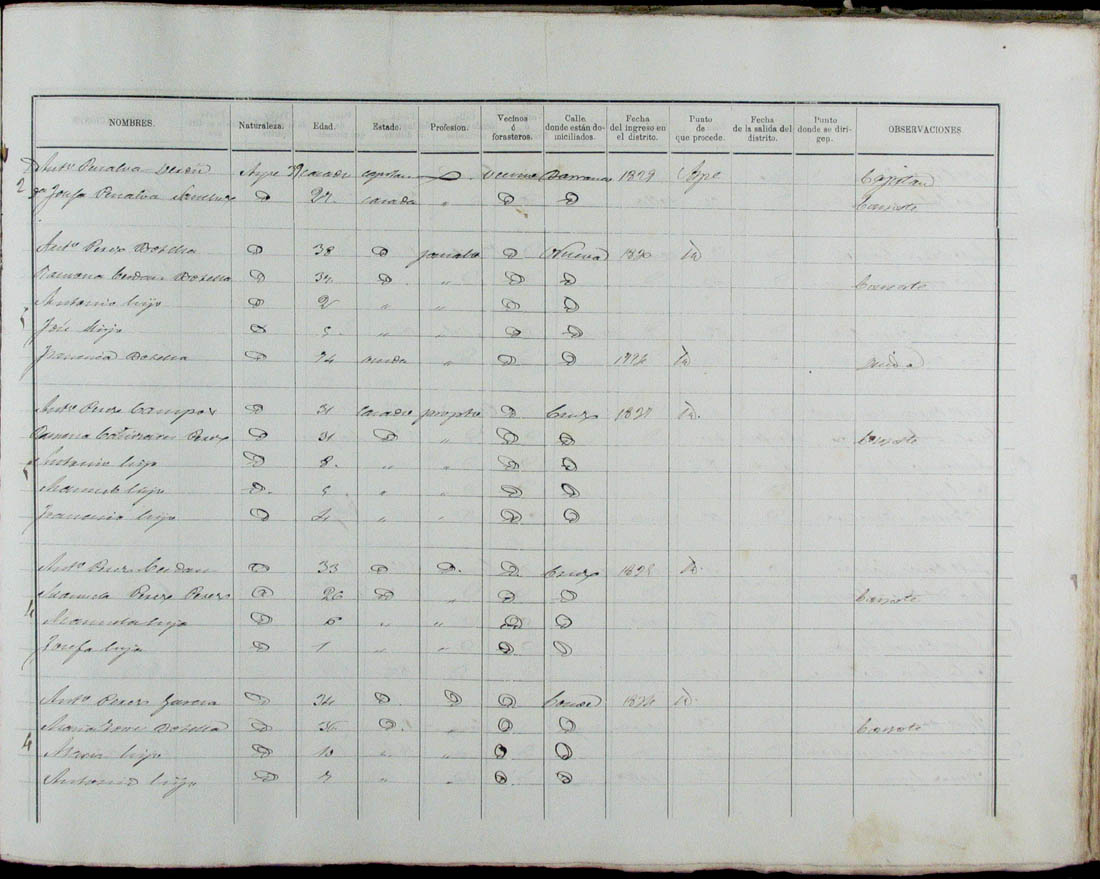 NOMBRES. Naturaleza. Edad. Estado. Profesion. Vecinos ó forasteros. Calle. donde están domiciliados. Fecha del ingreso en el distrito. Punto de que procede. Fecha de la salida del distrito. Punto donde se dirigen. OBSERVACIONES.
2 Antº Penalva casado Vecino 1829 Aspe Capitan
Josefa Penalva D 27 casada " D D Consorte
Antº Perez Botella D 38 D jornalero D Nueva Id
Ramona Cerdan Botella D 34 D " D D Consorte
Antonio hijo D 2 " " D D
José hijo D 5 " " D D
Francisca Botella D 74 viuda " D D Id viuda
Antº Perez Campos D 31 casado D Cruz Id
Ramona Perez D 31 D " D D Consorte
Antonio hijo D 8 " " D D
Manuel hijo D 5 " " D D
Francisco hijo D " " D D
Antº Perez Cerdan D 33 D D D Cruz Id
4 Manuela Perez Perez D 26 D " D D Consorte
Manuela hija D 6 " " D D
Josefa hija D 1 " " D D
Antº Perez Garcia D 34 D D D Id
4 Maria Botella D 36 D " D D Consorte
Maria hija D 10 " " D D
Antonio hijo D 7 " " D D